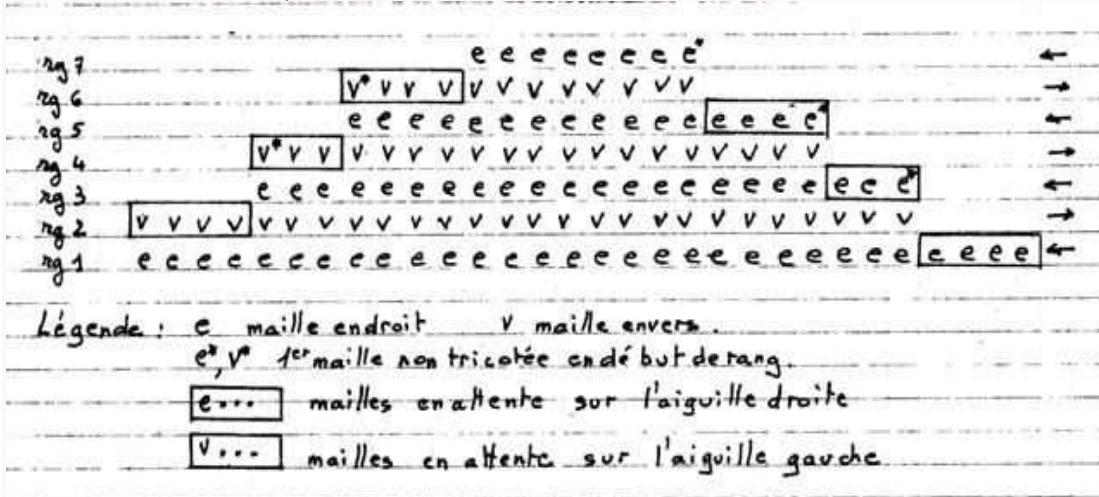 rg 7 e e e e e e e e* ←
rg 6 v* v v v v v v v v v v v →
rg 5 e e e e e e e e e e e e e e e e* ←
rg 4 v* v v v v v v v v v v v v v v v v v v →
rg 3 e e e e e e e e e e e e e e e e e e e e e e* ←
rg 2 v v v v v v v v v v v v v v v v v v v v v v v v v v →
rg 1 e e e e e e e e e e e e e e e e e e e e e e e e e e e e e e ←
Légende : e maille endroit v maille envers.
e*, v* 1er maille non tricotée en début de rang.
e... mailles en attente sur l'aiguille droite
v... mailles en attente sur l'aiguille gauche